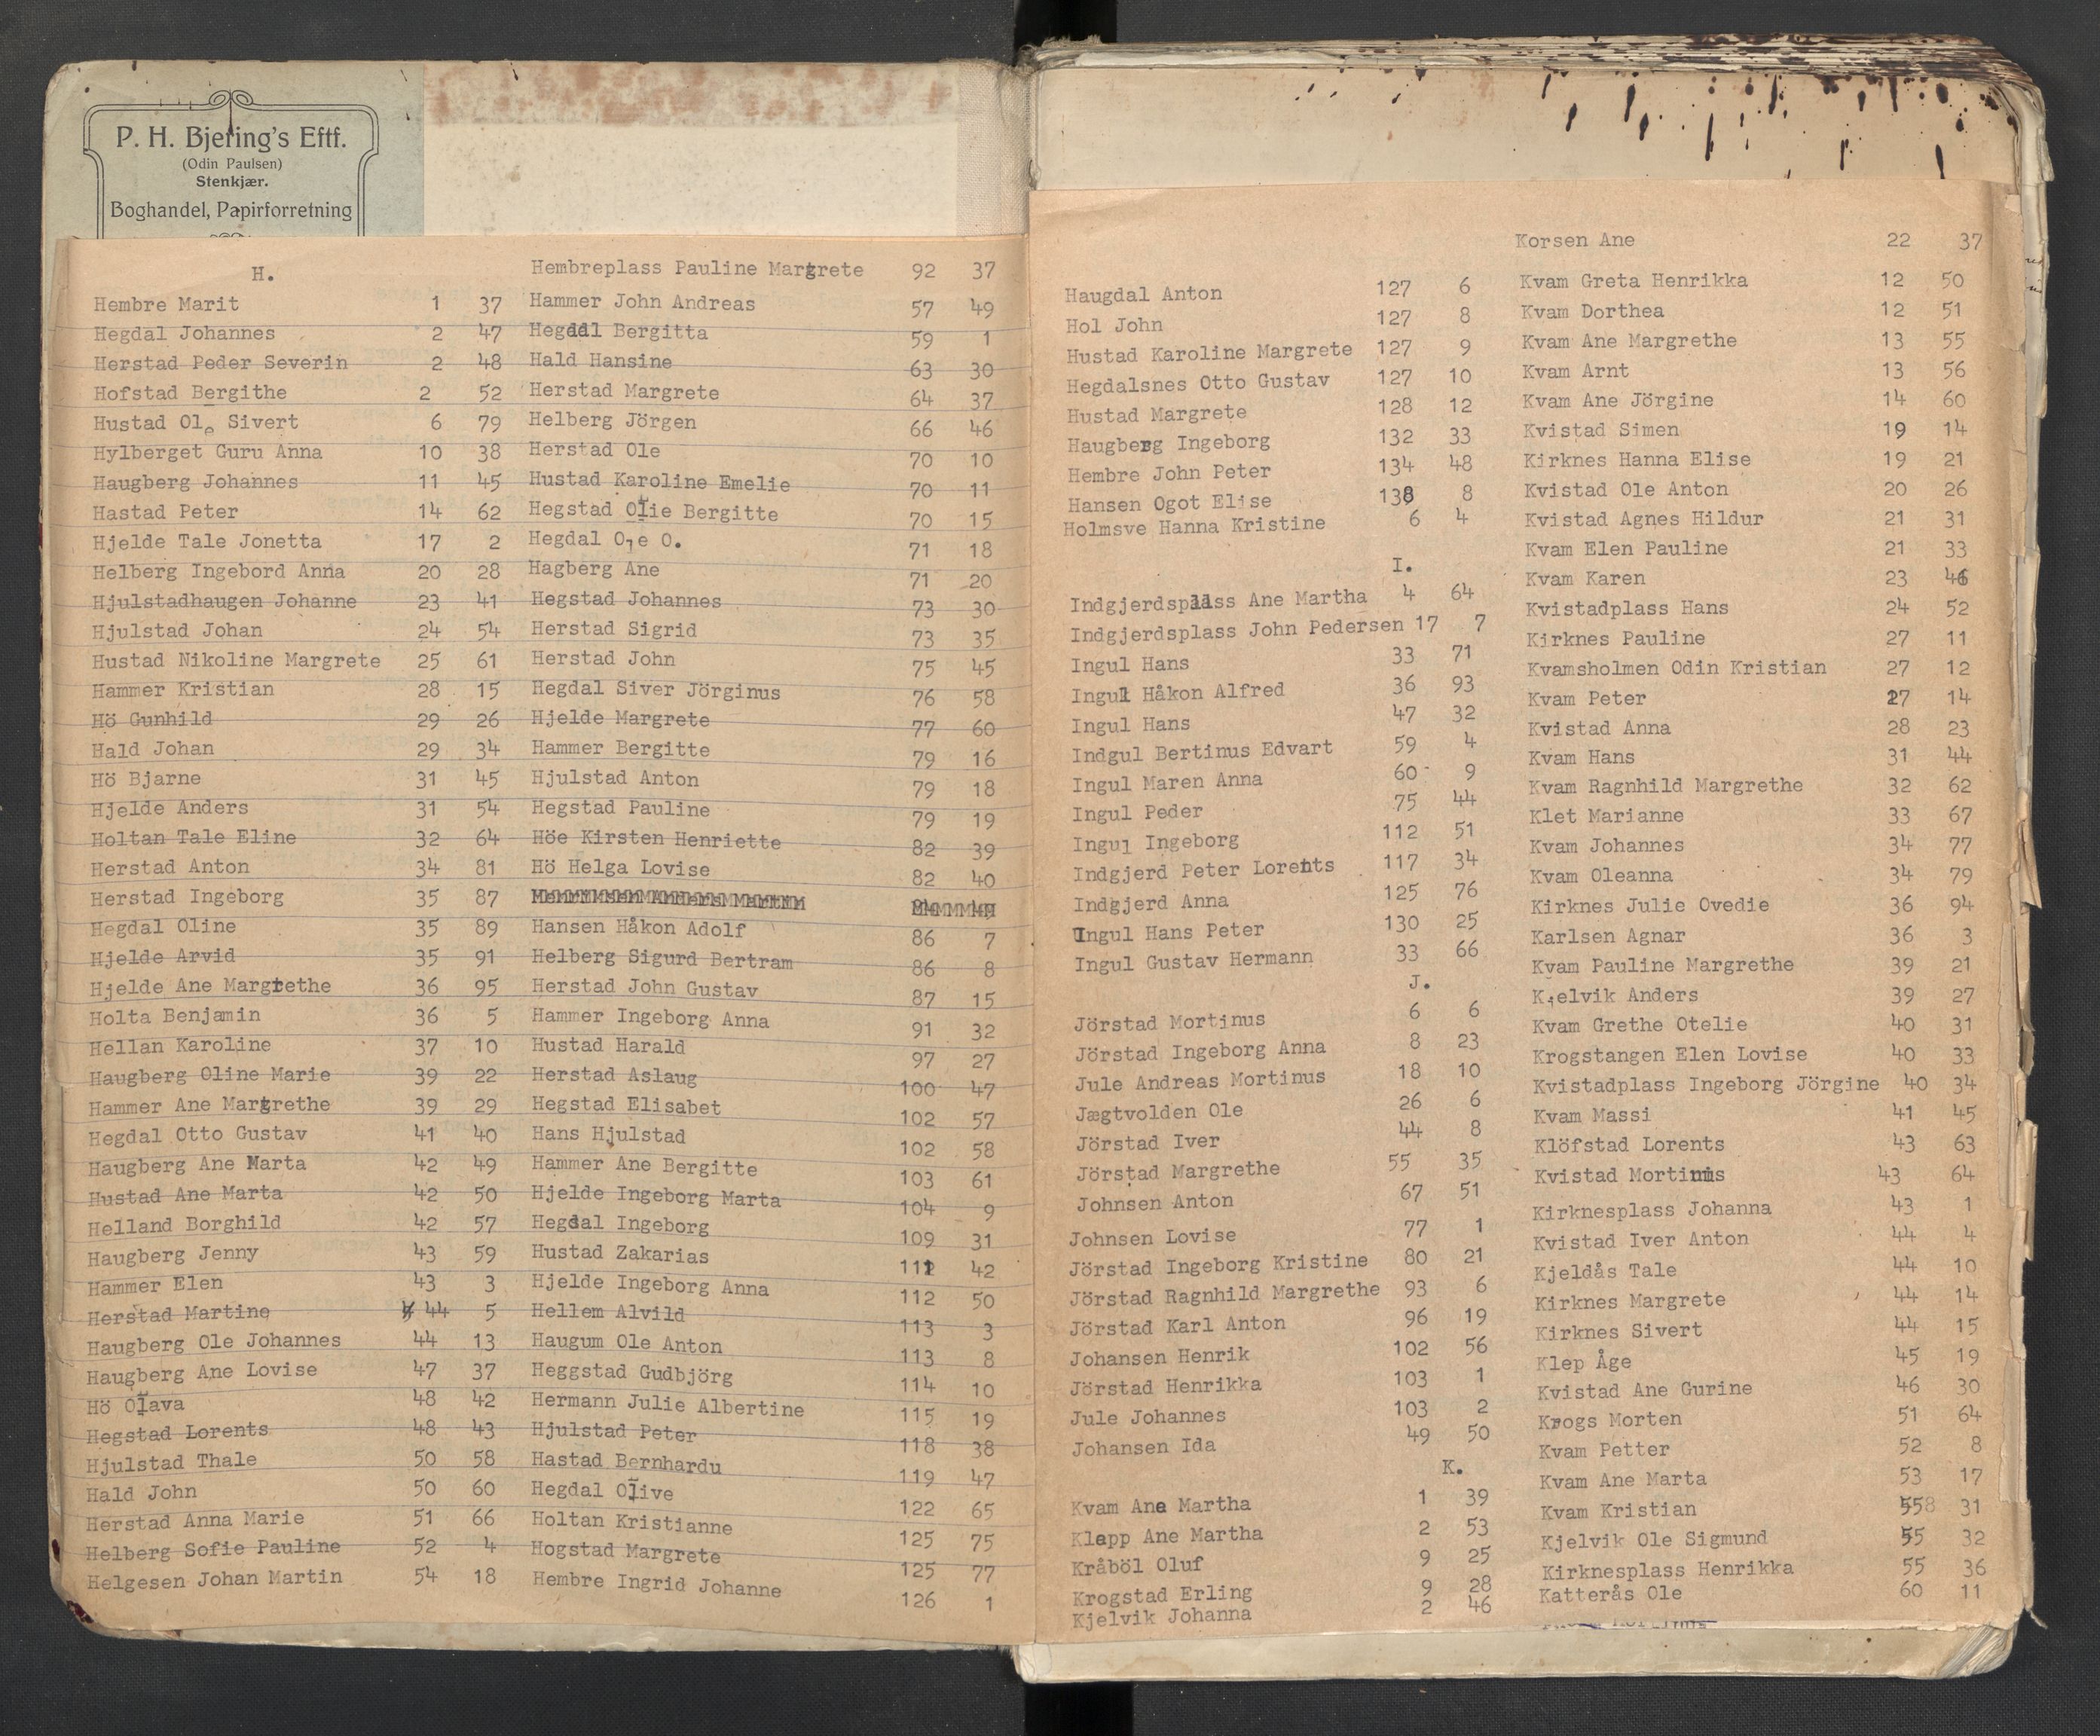 P. H. Bjering's Eftf.
(Odin Paulsen)
Stenkjær.
Boghandel, Papirforretning
H.
Hembre Marit 1 37
Hegdal Johannes 2 47
Herstad Peder Severin 2 48
Hofstad Bergithe 2 52
Hustad Ole Sivert 6 79
Hylberget Guru Anna 10 38
Haugberg Johannes 11 45
Hastad Peter 14 62
Hjelde Tale Jonetta 17 2
Helberg Ingebord Anna 20 28
Hjulstadhaugen Johanne 23 41
Hjulstad Johan 24 54
Hustad Nikoline Margrete 25 61
Hammer Kristian 28 15
Hö Gunhild 29 26
Hald Johan 29 34
Hö Bjarne 31 45
Hjelde Anders 31 54
Holtan Tale Eline 32 64
Herstad Anton 34 81
Herstad Ingeborg 35 87
Hegdal Oline 35 89
Hjelde Arvid 35 91
Hjelde Ane Margrethe 36 95
Holta Benjamin 36 5
Hellan Karoline 37 10
Haugberg Oline Marie 39 22
Hammer Ane Margrethe 39 29
Hegdal Otto Gustav 41 40
Haugberg Ane Marta 42 49
Hustad Ane Marta 42 50
Helland Borghild 42 57
Haugberg Jenny 43 59
Hammer Elen 43 3
Herstad Martine 44 5
Haugberg Ole Johannes 44 13
Haugberg Ane Lovise 47 37
Hö Olava 48 42
Hegstad Lorents 48 43
Hjulstad Thale 50 58
Hald John 50 60
Herstad Anna Marie 51 66
Helberg Sofie Pauline 52 4
Helgesen Johan Martin 54 18
Hembreplass Pauline Margrete 92 37
Hammer John Andreas 57 49
Hegdal Bergitta 59 1
Hald Hansine 63 30
Herstad Margrete 64 37
Helberg Jörgen 66 46
Herstad Ole 70 10
Hustad Karoline Emelie 70 11
Hegstad Olie Bergitte 70 15
Hegdal Ole O. 71 18
Hagberg Ane 71 20
Hegstad Johannes 73 30
Herstad Sigrid 73 35
Herstad John 75 45
Hegdal Siver Jörginus 76 58
Hjelde Margrete 77 60
Hammer Bergitte 79 16
Hjulstad Anton 79 18
Hegstad Pauline 79 19
Höe Kirsten Henriette 82 39
Hö Helga Lovise 82 40
Hansen Håkon Adolf 86 7
Helberg Sigurd Bertram 86 8
Herstad John Gustav 87 15
Hammer Ingeborg Anna 91 32
Hustad Harald 97 27
Herstad Aslaug 100 47
Hegstad Elisabet 102 57
Hans Hjulstad 102 58
Hammer Ane Bergitte 103 61
Hjelde Ingeborg Marta 104 9
Hegdal Ingeborg 109 31
Hustad Zakarias 42
Hjelde Ingeborg Anna 112 50
Hellem Alvild 113 3
Haugum Ole Anton 113 8
Heggstad Gudbjörg 114 10
Hermann Julie Albertine 115 19
Hjulstad Peter 118 38
Hastad Bernhardu 119 47
Hegdal Olive 122 65
Holtan Kristianne 125 75
Hogstad Margrete 125 77
Hembre Ingrid Johanne 126 1
Haugdal Anton 127 6
Hol John 127 8
Hustad Karoline Margrete 127 9
Hegdalsnes Otto Gustav 127 10
Hustad Margrete 128 12
Haugberg Ingeborg 132 33
Hembre John Peter 134 48
Hansen Ogot Elise 138 8
Holmsve Hanna Kristine 6 4
I.
Indgjerdsplass Ane Martha 4 64
Indgjerdsplass John Pedersen 17 7
Ingul Hans 33 71
Ingul Håkon Alfred 36 93
Ingul Hans 47 32
Indgul Bertinus Edvart 59 4
Ingul Maren Anna 60 9
Ingul Peder 75 44
Ingul Ingeborg 112 51
Indgjerd Peter Lorents 117 34
Indgjerd Anna 125 76
Ingul Hans Peter 130 25
Ingul Gustav Hermann 33 66
J.
Jörstad Mortinus 6 6
Jörstad Ingeborg Anna 8 23
Jule Andreas Mortinus 18 10
Jægtvolden Ole 26 6
Jörstad Iver 44 8
Jörstad Margrethe 55 35
Johnsen Anton 67 51
Johnsen Lovise 77 1
Jörstad Ingeborg Kristine 80 21
Jörstad Ragnhild Margrethe 93 6
Jörstad Karl Anton 96 19
Johansen Henrik 102 56
Jörstad Henrikka 103 1
Jule Johannes 103 2
Johansen Ida 49 50
K.
Kvam Ane Martha 1 39
Klepp Ane Martha 2 53
Kråböl Oluf 9 25
Krogstad Erling 9 28
Kjelvik Johanna 2 46
Korsen Ane 22 37
Kvam Greta Henrikka 12 50
Kvam Dorthea 12 51
Kvam Ane Margrethe 13 55
Kvam Arnt 13 56
Kvam Ane Jörgine 14 60
Kvistad Simen 19 14
Kirknes Hanna Elise 19 21
Kvistad Ole Anton 20 26
Kvistad Agnes Hildur 21 31
Kvam Elen Pauline 21 33
Kvam Karen 23 46
Kvistadplass Hans 24 52
Kirknes Pauline 27 11
Kvamsholmen Odin Kristian 27 12
Kvam Peter 27 14
Kvistad Anna 28 23
Kvam Hans 31 44
Kvam Ragnhild Margrethe 32 62
Klet Marianne 33 67
Kvam Johannes 34 77
Kvam Oleanna 34 79
Kirknes Julie Ovedie 36 94
Karlsen Agnar 36 3
Kvam Pauline Margrethe 39 21
Kjelvik Anders 39 27
Kvam Grethe Otelie 40 31
Krogstangen Elen Lovise 40 33
Kvistadplass Ingeborg Jörgine 40 34
Kvam Massi 41 45
Klöfstad Lorents 43 63
Kvistad Mortinus 43 64
Kirknesplass Johanna 43 1
Kvistad Iver Anton 44 4
Kjeldås Tale 44 10
Kirknes Margrete 44 14
Kirknes Sivert 44 15
Klep Åge 45 19
Kvistad Ane Gurine 46 30
Krogs Morten 51 64
Kvam Petter 52 8
Kvam Ane Marta 53 17
Kvam Kristian 558 31
Kjelvik Ole Sigmund 55 32
Kirknesplass Henrikka 55 36
Katterås Ole 60 11